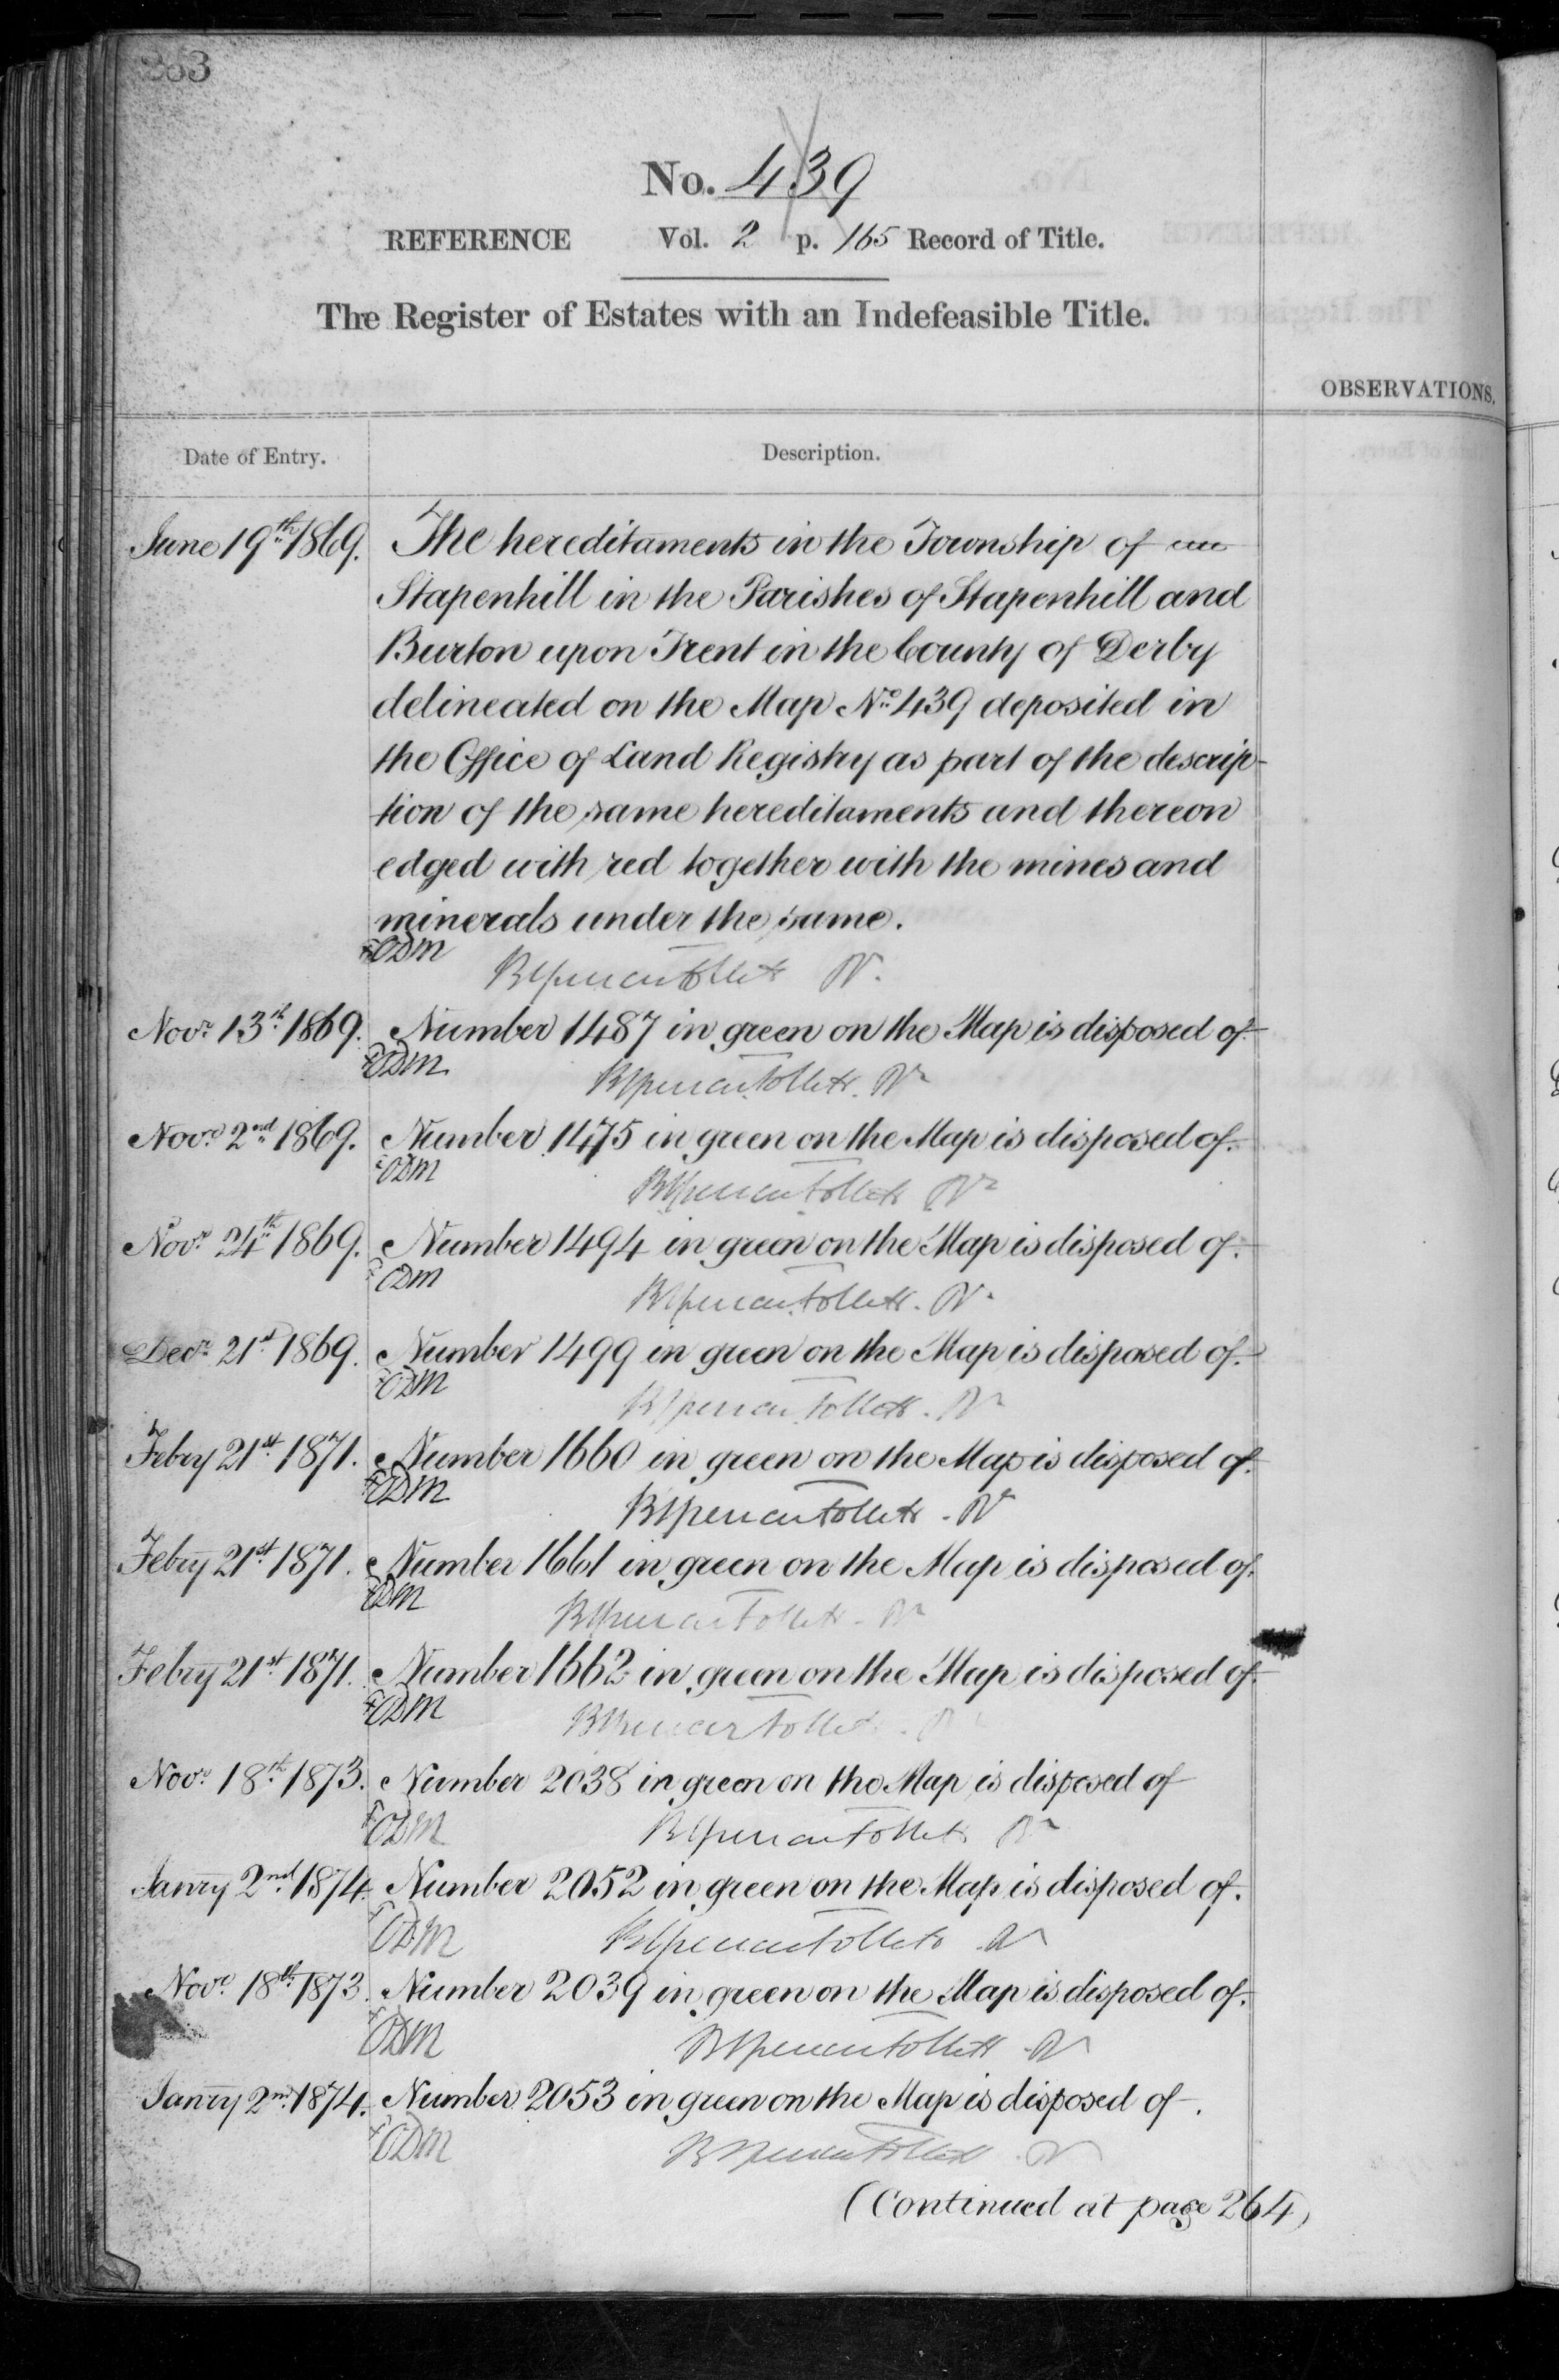 263
No. 439
REFERENCE Vol. 2 p. 165 Record of Title.
The Register of Estates with an Indefeasible Title.
OBSERVATIONS.
Date of Entry. Description.
June 19th 1869. The hereditaments in the Township of
Stapenhill in the Parishes of Stapenhill and
Burton upon Trent in the County of Derby
delineated on the Map No. 439 deposited in
the Office of Land Registry as part of the descrip-
tion of the same hereditaments and thereon
edged with red together with the mines and
minerals under the same.
ODM
Brent Spencer Follett R.
Novr. 13th 1869. Number 1487 in green on the Map is disposed of
ODM
Novr. 2nd 1869. Number 1475 in green on the Map is disposed of.
ODM
Novr. 24th 1869. Number 1494 in green on the Map is disposed of.
ODM
Decr. 21st 1869. Number 1499 in green on the Map is disposed of.
ODM
Febry 21st 1871. Number 1660 in green on the Map is disposed of.
ODM
Febry 21st 1871. Number 1661 in green on the Map is disposed of.
ODM
Febry 21st 1871. Number 1662 in green on the Map is disposed of.
ODM
Novr. 18th 1873. Number 2038 in green on the Map is disposed of
ODM
Janry 2nd 1874. Number 2052 in green on the Map is disposed of.
ODM
Novr. 18th 1873. Number 2039 in green on the Map is disposed of.
ODM
Janry 2nd 1874. Number 2053 in green on the Map is disposed of.
ODM
(Continued at page 264)